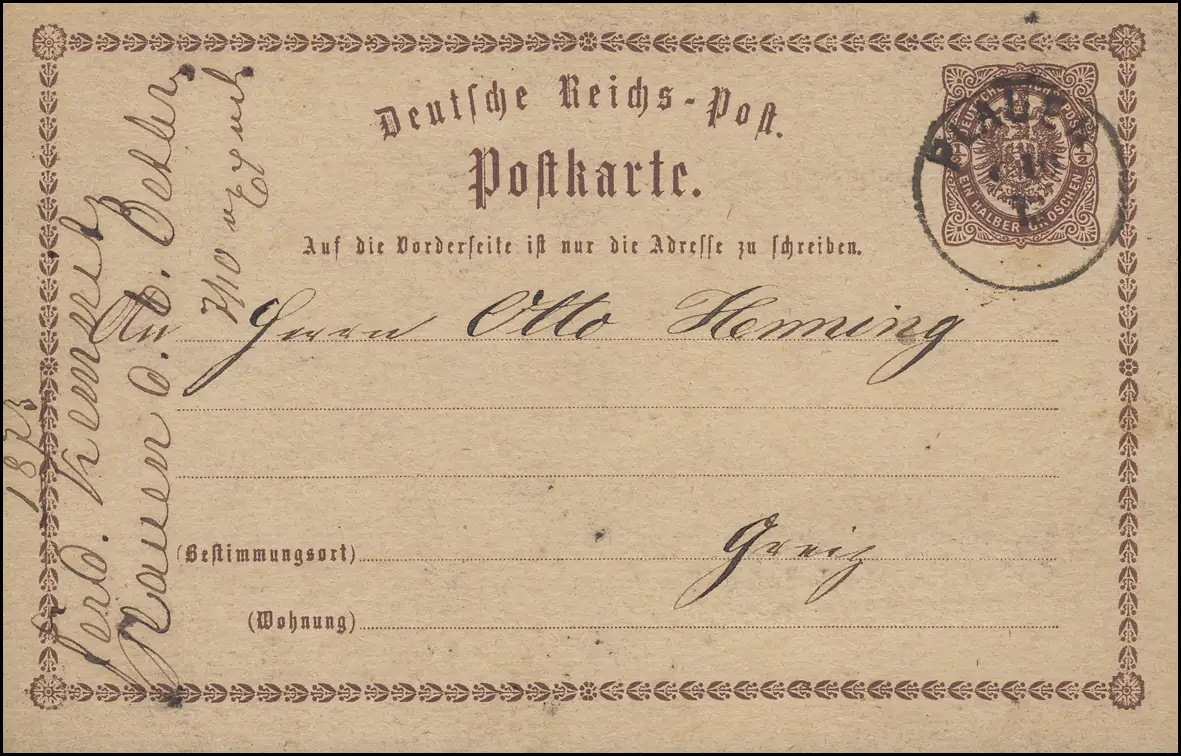 Deutsche Reichs-Post.
Postkarte.
Auf die Vorderseite ist nur die Adresse zu schreiben.
DEUTSCHE REICHS POST
½ ½
EIN HALBER GROSCHEN
PLAUEN
An Herrn Otto Henning
(Bestimmungsort) Greiz
(Wohnung)
1873
Ferd.
Plauen d. 6. October
7/10